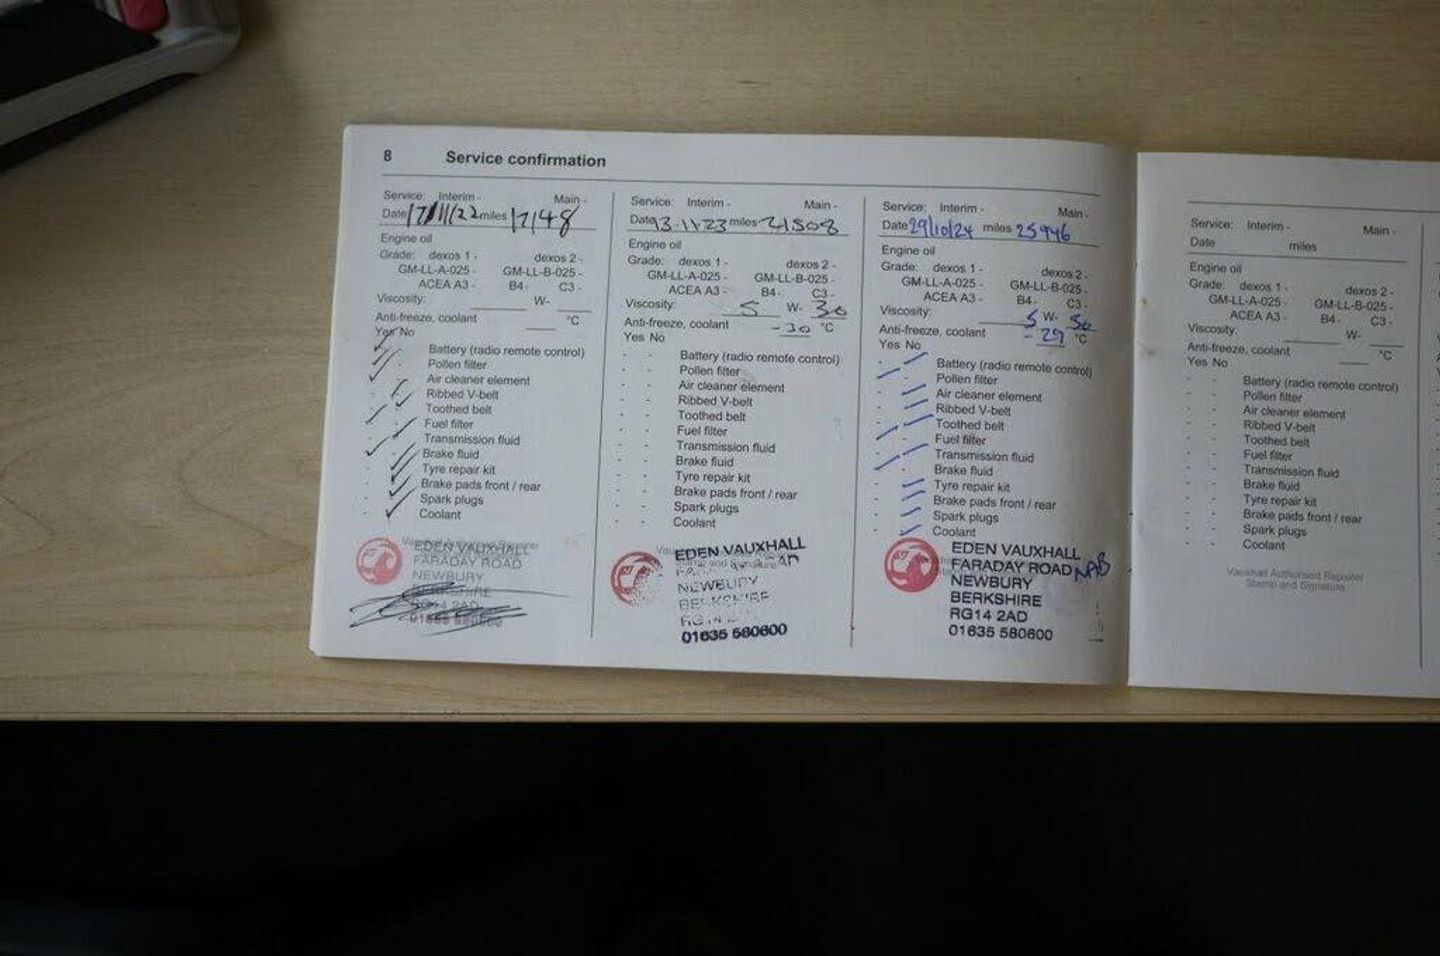 8 Service confirmation
Service: Interim - Main -
Date 17/11/22 miles 17148
Engine oil
Grade: dexos 1 - dexos 2 -
GM-LL-A-025 - GM-LL-B-025 -
ACEA A3 - B4 - C3 -
Viscosity: W-
Anti-freeze, coolant °C
Yes No
Battery (radio remote control)
Pollen filter
Air cleaner element
Ribbed V-belt
Toothed belt
Fuel filter
Transmission fluid
Brake fluid
Tyre repair kit
Brake pads front / rear
Spark plugs
Coolant
Vauxhall Authorised Repairer
EDEN VAUXHALL
FARADAY ROAD
NEWBURY
BERKSHIRE
RG14 2AD
01635 580600
Service: Interim - Main -
Date 13.11.23 miles 21508
Engine oil
Grade: dexos 1 - dexos 2 -
GM-LL-A-025 - GM-LL-B-025 -
ACEA A3 - B4 - C3 -
Viscosity: 5 W- 30
Anti-freeze, coolant -30 °C
Yes No
Battery (radio remote control)
Pollen filter
Air cleaner element
Ribbed V-belt
Toothed belt
Fuel filter
Transmission fluid
Brake fluid
Tyre repair kit
Brake pads front / rear
Spark plugs
Coolant
EDEN VAUXHALL
Stamp and Signature
NEWBURY
BERKSHIRE
01635 580600
Service: Interim - Main -
Date 29/10/24 miles 25946
Engine oil
Grade: dexos 1 - dexos 2 -
GM-LL-A-025 - GM-LL-B-025 -
ACEA A3 - B4 - C3 -
Viscosity: 5 W- 30
Anti-freeze, coolant -29 °C
Yes No
Battery (radio remote control)
Pollen filter
Air cleaner element
Ribbed V-belt
Toothed belt
Fuel filter
Transmission fluid
Brake fluid
Tyre repair kit
Brake pads front / rear
Spark plugs
Coolant
EDEN VAUXHALL
FARADAY ROAD
NEWBURY
BERKSHIRE
RG14 2AD
01635 580600
Service: Interim - Main -
Date miles
Engine oil
Grade: dexos 1 - dexos 2 -
GM-LL-A-025 - GM-LL-B-025 -
ACEA A3 - B4 - C3 -
Viscosity: W-
Anti-freeze, coolant °C
Yes No
Battery (radio remote control)
Pollen filter
Air cleaner element
Ribbed V-belt
Toothed belt
Fuel filter
Transmission fluid
Brake fluid
Tyre repair kit
Brake pads front / rear
Spark plugs
Coolant
Vauxhall Authorised Repairer
Stamp and Signature